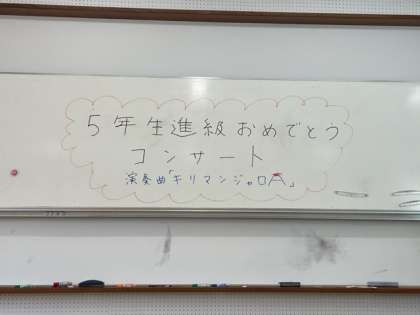 5年生進級おめでとう
コンサート
演奏曲「キリマンジャロ」